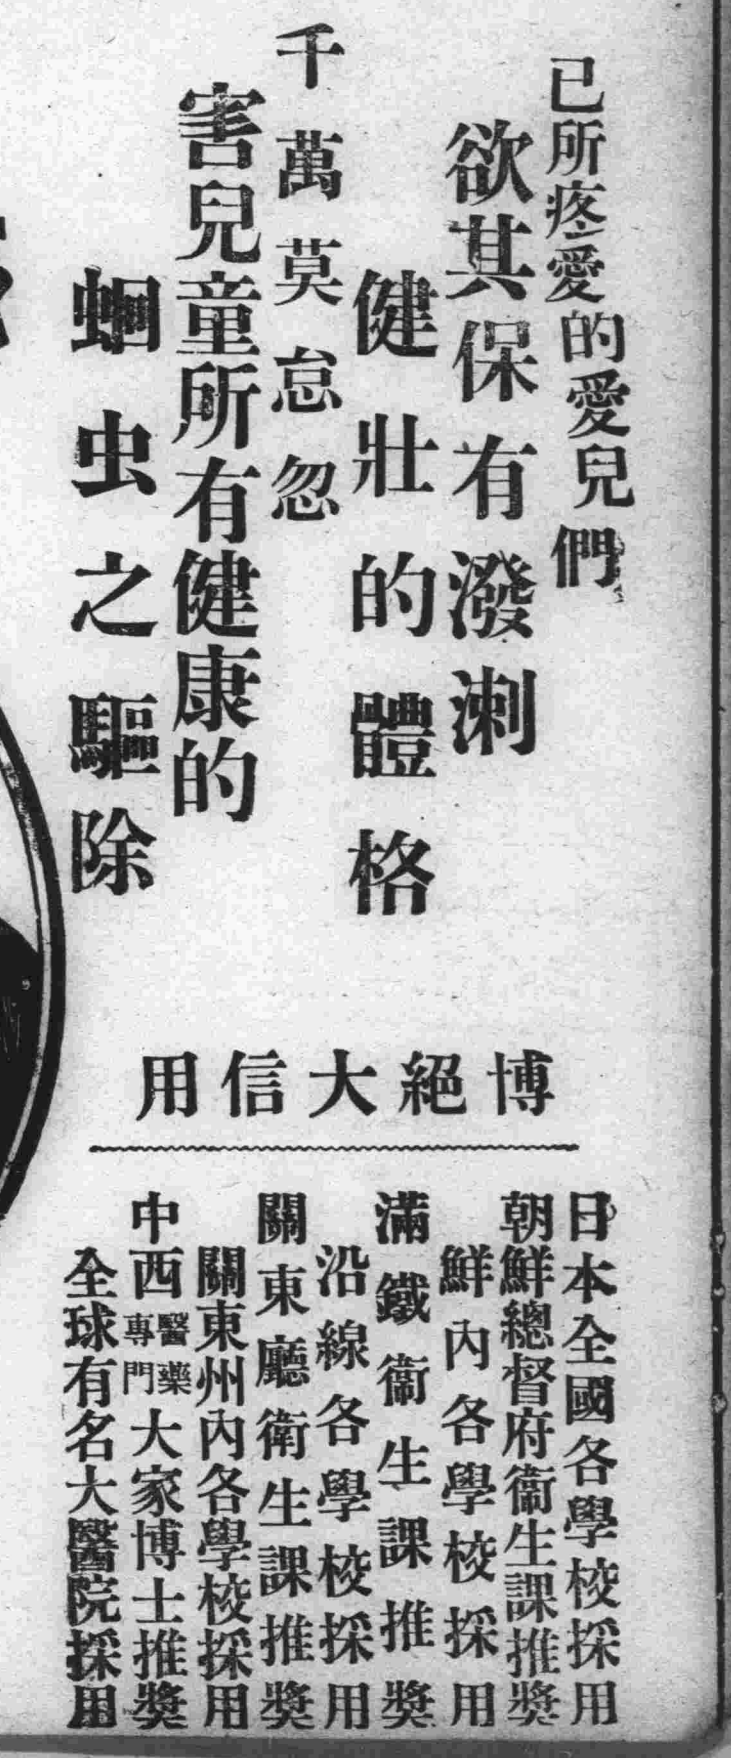 已所疼愛的愛兒們
欲其保有潑溂
健壯的體格
千萬莫怠忽
害兒童所有健康的
蛔虫之驅除
博絕大信用
日本全國各學校採用
朝鮮總督府衞生課推獎
鮮內各學校採用
滿鐵衞生課推獎
沿線各學校採用
關東廳衛生課推獎
關東州內各學校採用
中西醫藥專門大家博士推獎
全球有名大醫院採用